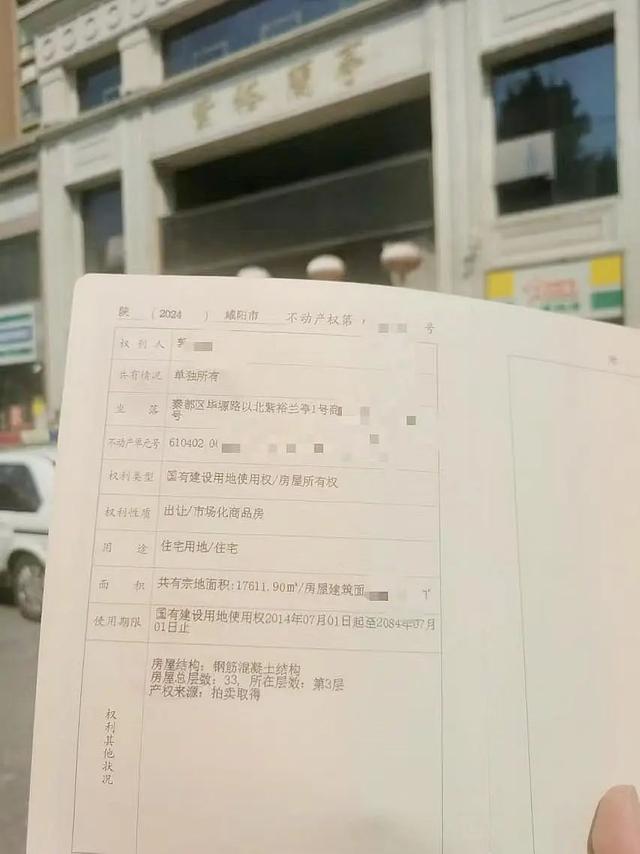 紫裕蘭亭
陕 （2024 ） 咸阳市 不动产权第 号
权利人 郭
共有情况 单独所有
坐落 秦都区毕塬路以北紫裕兰亭1号商
号
不动产单元号 610402 00
权利类型 国有建设用地使用权/房屋所有权
权利性质 出让/市场化商品房
用途 住宅用地/住宅
面积 共有宗地面积:17611.90㎡/房屋建筑面
使用期限 国有建设用地使用权2014年07月01日起至2084年07月
01日止
权利其他状况
房屋结构：钢筋混凝土结构
房屋总层数：33，所在层数：第3层
产权来源：拍卖取得
附